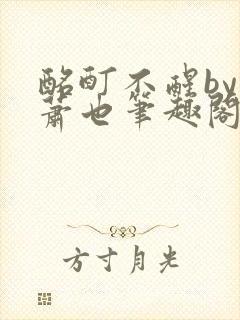 酩酊不醒by
萧也筆趣閣
方寸月光